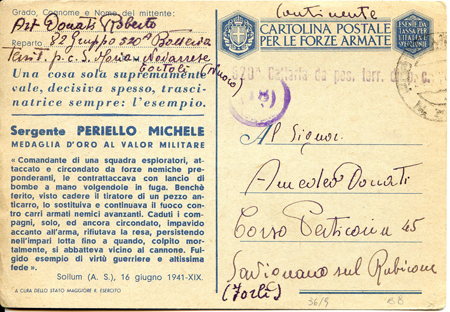 Continente
Grado, Cognome e Nome del mittente:
Art. Donati Roberto
Reparto 82 Gruppo 520ª Batteria
p. c. S. Maria Navarrese
Tortolì (Nuoro)
Una cosa sola supremamente
vale, decisiva spesso, trasci-
natrice sempre: l'esempio.
Sergente PERIELLO MICHELE
MEDAGLIA D'ORO AL VALOR MILITARE
« Comandante di una squadra esploratori, at-
taccato e circondato da forze nemiche prepon-
deranti, le contrattaccava con lancio di
bombe a mano volgendole in fuga. Benchè
ferito, visto cadere il tiratore di un pezzo an-
ticarro, lo sostituiva e continuava il fuoco
contro carri armati nemici avanzanti. Caduti i com-
pagni, solo, ed ancora circondato, impavido
accanto all'arma, rifiutava la resa, persistendo
nell'impari lotta fino a quando, colpito mor-
talmente, si abbatteva vicino al cannone. Ful-
gido esempio di virtù guerriere e altissima
fede ».
Sollum (A. S.), 16 giugno 1941-XIX.
A CURA DELLO STATO MAGGIORE R. ESERCITO
CARTOLINA POSTALE
PER LE FORZE ARMATE
ESENTE DA
TASSA PER
L'ITALIA E
520ª Batteria da pos. c.
Al Signor
Amedeo Donati
Corso Perticari 45
Savignano sul Rubicone
(Forlì)